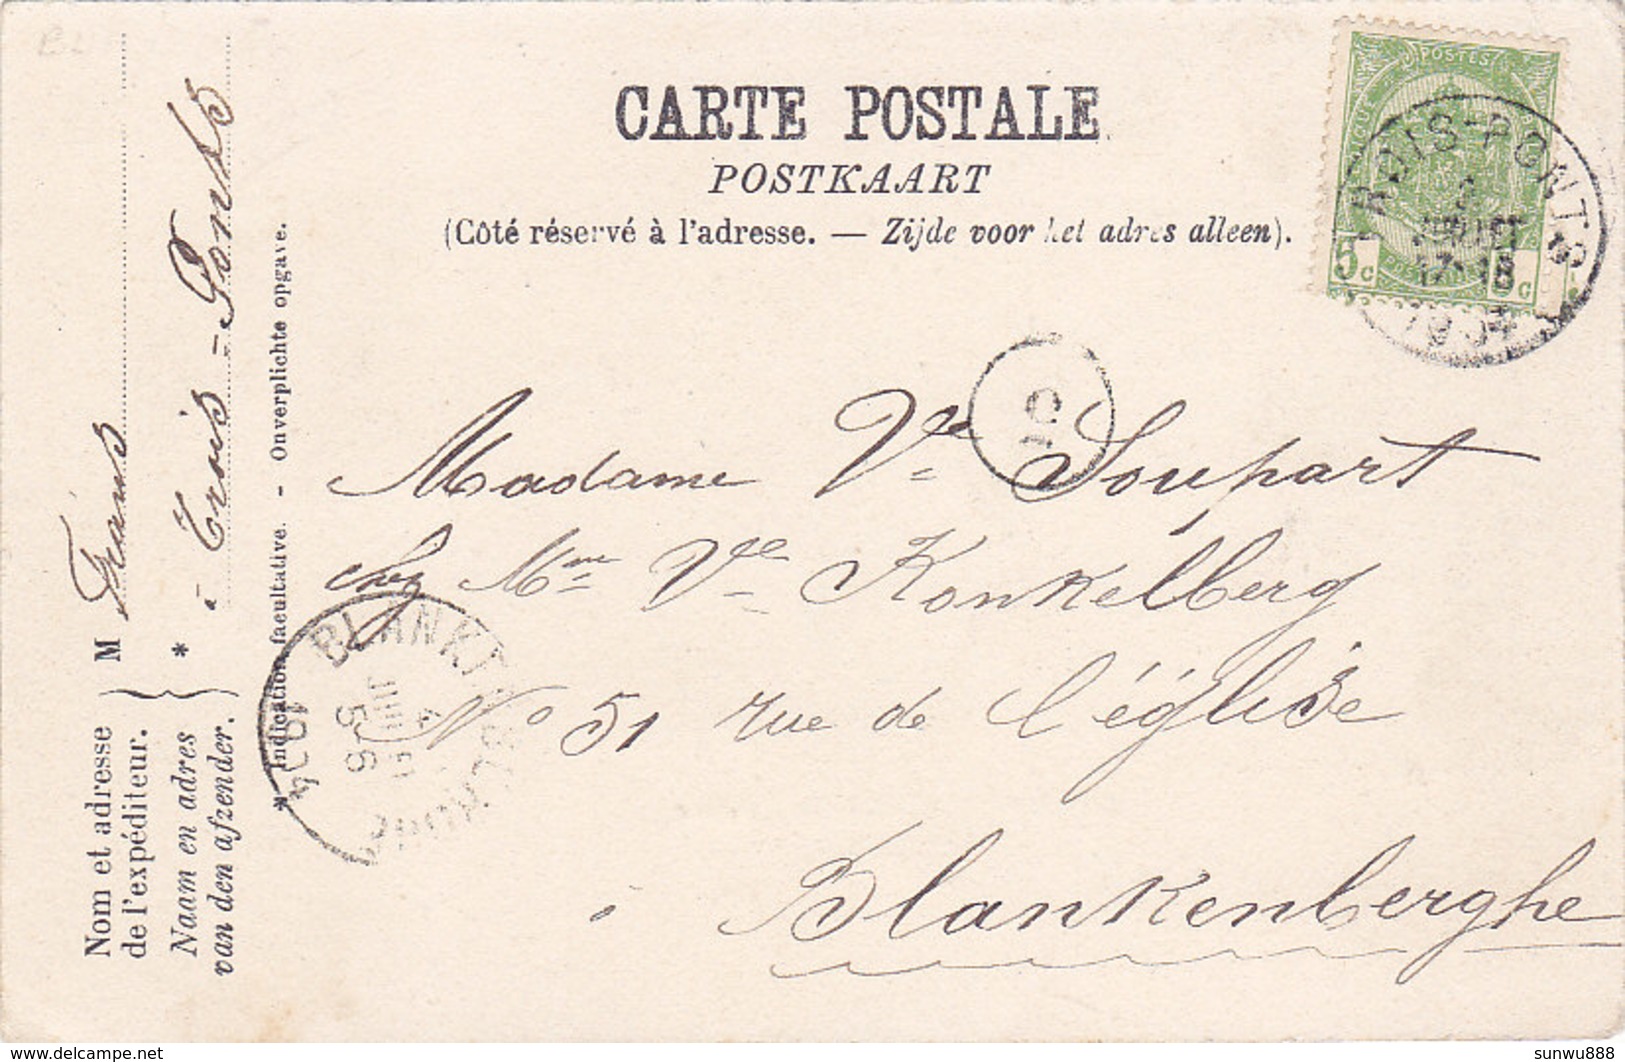 CARTE POSTALE
POSTKAART
(Côté réservé à l'adresse. — Zijde voor het adres alleen).
POSTES
5c
5c
TROIS-PONTS
1904
10
Madame Ve Soupart
chez Mme Ve Konkelberg
No 51 rue de l'église
à Blankenberghe
BLANKENBERGHE
5-6
1904
Nom et adresse
de l'expéditeur.
Naam en adres
van den afzender.
M
*
à Trois-Ponts
* Indication facultative. - Onverplichte opgave.
sunwu888